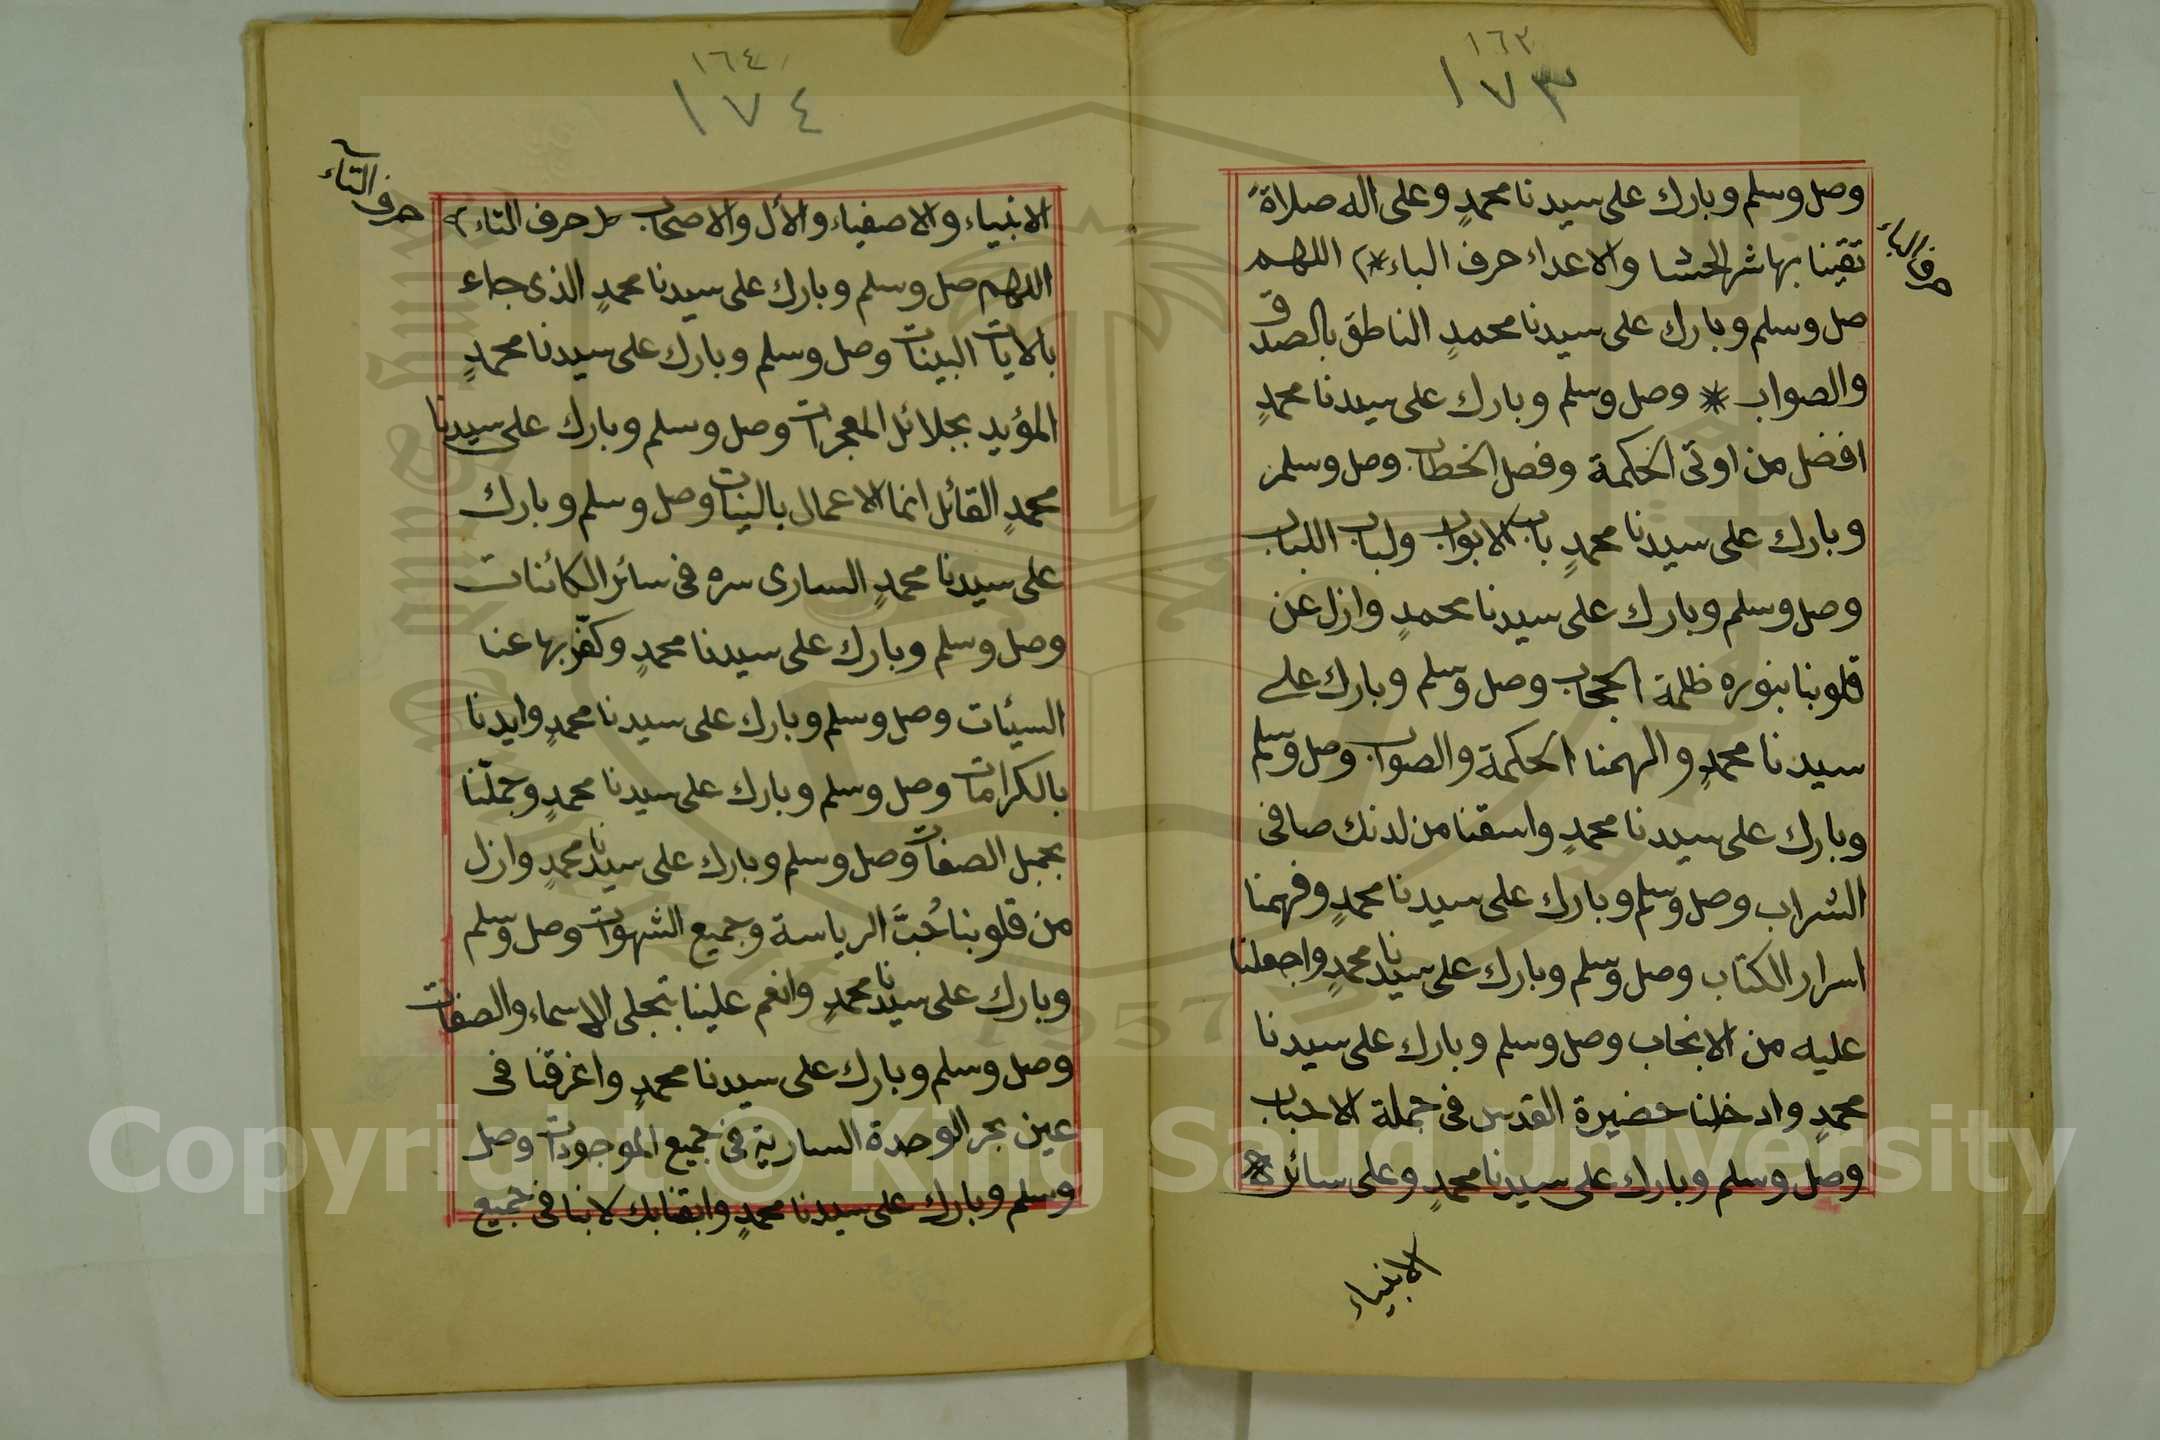 ١٦٣
١٧٣
حرف الباء
وصل وسلم وبارك على سيدنا محمدٍ وعلى اله صلاةً
تقينا بها شر الحشا والاعداء حرف الباء*) اللهم
صل وسلم وبارك على سيدنا محمدٍ الناطق بالصدق
والصواب * وصل وسلم وبارك على سيدنا محمدٍ
افضل من اوتى الحكمة وفصل الخطاب وصل وسلم
وبارك على سيدنا محمدٍ باب الابواب ولباب اللباب
وصل وسلم وبارك على سيدنا محمدٍ وازل عن
قلوبنا بنوره ظلمة الحجاب وصل وسلم وبارك على
سيدنا محمدٍ والهمنا الحكمة والصواب وصل وسلم
وبارك على سيدنا محمدٍ واسقنا من لدنك صافى
الشراب وصل وسلم وبارك على سيدنا محمدٍ وفهمنا
اسرار الكتاب وصل وسلم وبارك على سيدنا محمدٍ واجعلنا
عليه من الانجاب وصل وسلم وبارك على سيدنا
محمدٍ وادخلنا حضيرة القدس فى جملة الاحباب
وصل وسلم وبارك على سيدنا محمدٍ وعلى سائر
الانبياء
١٦٤
١٧٤
حرف التآء
الانبياء والاصفياء والأل والاصحاب (حرف التاء)
اللهم صل وسلم وبارك على سيدنا محمدٍ الذى جاء
بالايات البينات وصل وسلم وبارك على سيدنا محمدٍ
المؤيد بجلائل المعجزات وصل وسلم وبارك على سيدنا
محمدٍ القائل انما الاعمال بالنيات وصل وسلم وبارك
على سيدنا محمدٍ السارى سره فى سائر الكائنات
وصل وسلم وبارك على سيدنا محمدٍ وكفّر بها عنا
السيئات وصل وسلم وبارك على سيدنا محمدٍ وايدنا
بالكرامات وصل وسلم وبارك على سيدنا محمدٍ وجملّنا
بجميل الصفات وصل وسلم وبارك على سيدنا محمدٍ وازل
من قلوبنا حُبَّ الرياسة وجميع الشهوات وصل وسلم
وبارك على سيدنا محمدٍ وانعم علينا بتجلى الاسماء والصفات
وصل وسلم وبارك على سيدنا محمدٍ واغرقنا فى
عين بحر الوحدة السارية فى جميع الموجودات وصل
وسلم وبارك على سيدنا محمدٍ وابقنا بك لا بنا فى جميع
Copyright © King Saud University
1957